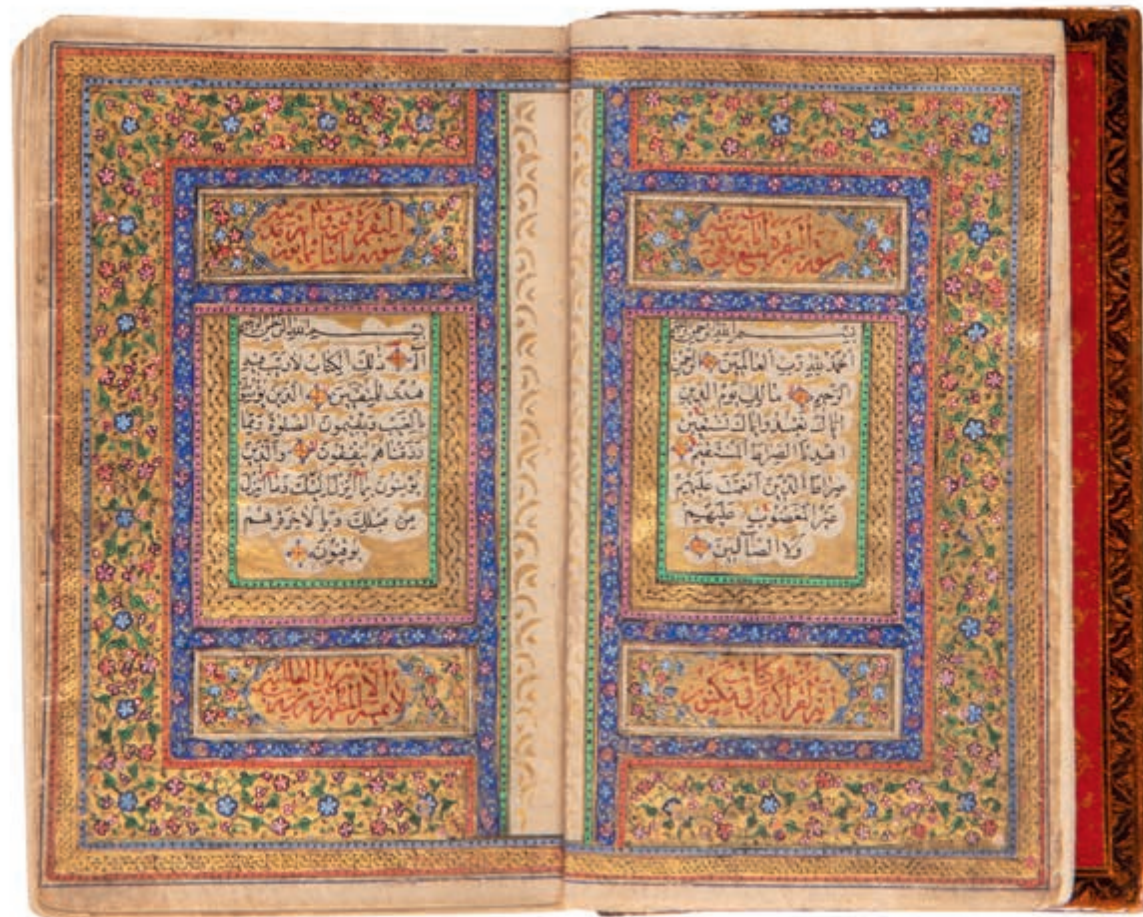 سورة سبع
بسم الله الرحمن الرحيم
الحمد لله رب العالمين الرحمن
الرحيم مالك يوم الدين
اياك نعبد واياك نستعين
اهدنا الصراط المستقيم
صراط الذين انعمت عليهم
غير المغضوب عليهم
ولا الضالين
انه لقران كريم في كتاب مكنون
سورة البقرة مائتان
بسم الله الرحمن الرحيم
الم ذلك الكتاب لا ريب فيه
هدى للمتقين الذين يؤمنون
بالغيب ويقيمون الصلوة ومما
رزقناهم ينفقون والذين
يؤمنون بما انزل اليك وما انزل
من قبلك وبالاخرة هم
يوقنون
لا يمسه الا المطهرون تنزيل من رب العالمين